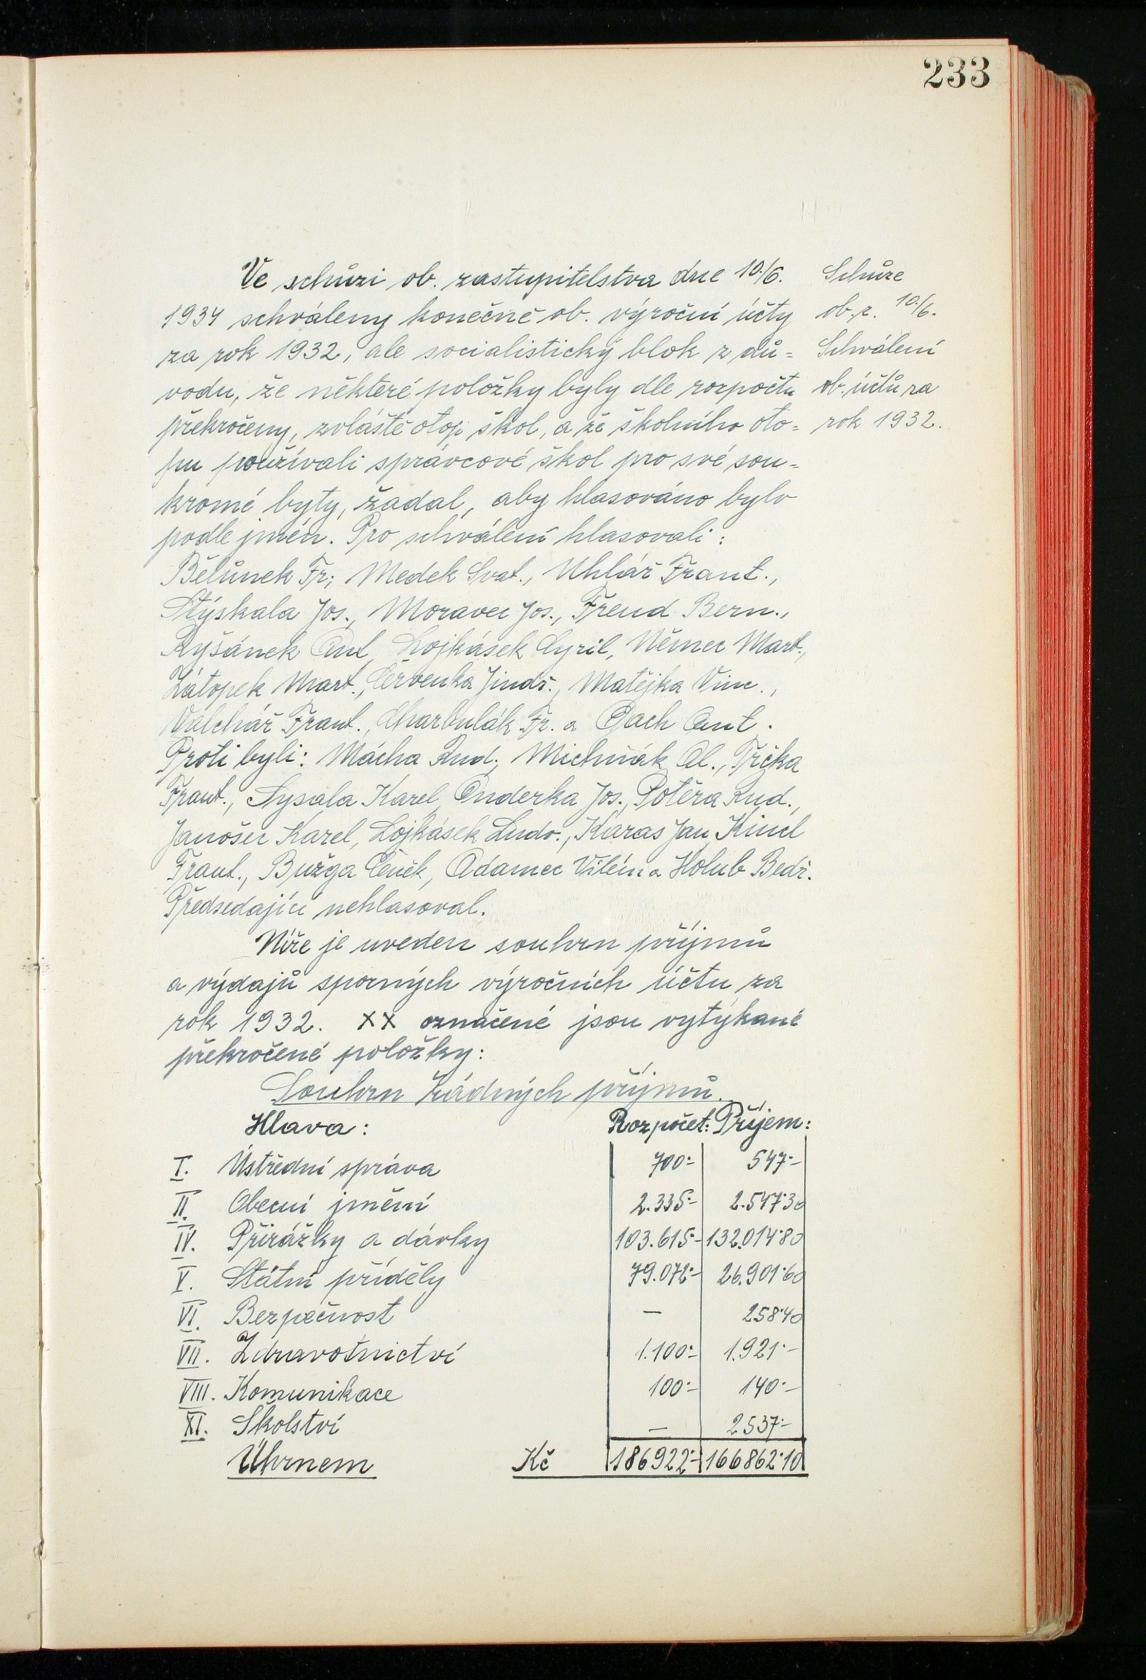 233
Ve schůzi ob. zastupitelstva dne 10./6.
1934 schváleny konečně ob. výroční účty
za rok 1932, ale socialistický blok z dů=
vodu, že některé položky byly dle rozpočtu
překročeny, zvláště otop škol, a že školního oto=
pu používali správcové škol pro své sou=
kromé byty, žadal, aby hlasováno bylo
podle jmén. Pro schválení hlasovali:
Bělůnek Fr., Medek Svat., Uhlář Frant.,
Stýskala Jos., Moravec Jos., Freud Bern.,
Ryšánek Ant., Lojkásek Cyril, Němec Mart.,
Zátopek Mart., Červenka Jindř., Matějka Vinc.,
Valchář Frant., Charbulák Fr. a Bach Ant.
Proti byli: Mácha Rud., Michňák Al., Trčka
Frant., Sysala Karel, Onderka Jos., Potěra Rud.,
Janošec Karel, Lojkásek Ludv., Karas Jan, Kincl
Frant., Bužga Čeněk, Adamec Vilém a Holub Bedř.
Předsedající nehlasoval.
Schůze
ob. z. 10./6.
Schválení
ob. účtů za
rok 1932.
Níže je uveden souhrn příjmů
a výdajů sporných výročních účtu za
rok 1932. XX označené jsou vytýkané
překročené položky:
Souhrn řádných příjmů.
Hlava: Rozpočet: Příjem:
I. Ústřední správa 700·- 547·-
II. Obecní jmění 2.335·- 2.547·30
IV. Přirážky a dávky 103.615·- 132.014·80
V. Státní příděly 79.072·- 26.901·60
VI. Bezpečnost — 258·40
VII. Zdravotnictví 1.100·- 1.921·-
VIII. Komunikace 100·- 140·-
XI. Školství — 2537·-
Úhrnem Kč 186922·- 166862·10